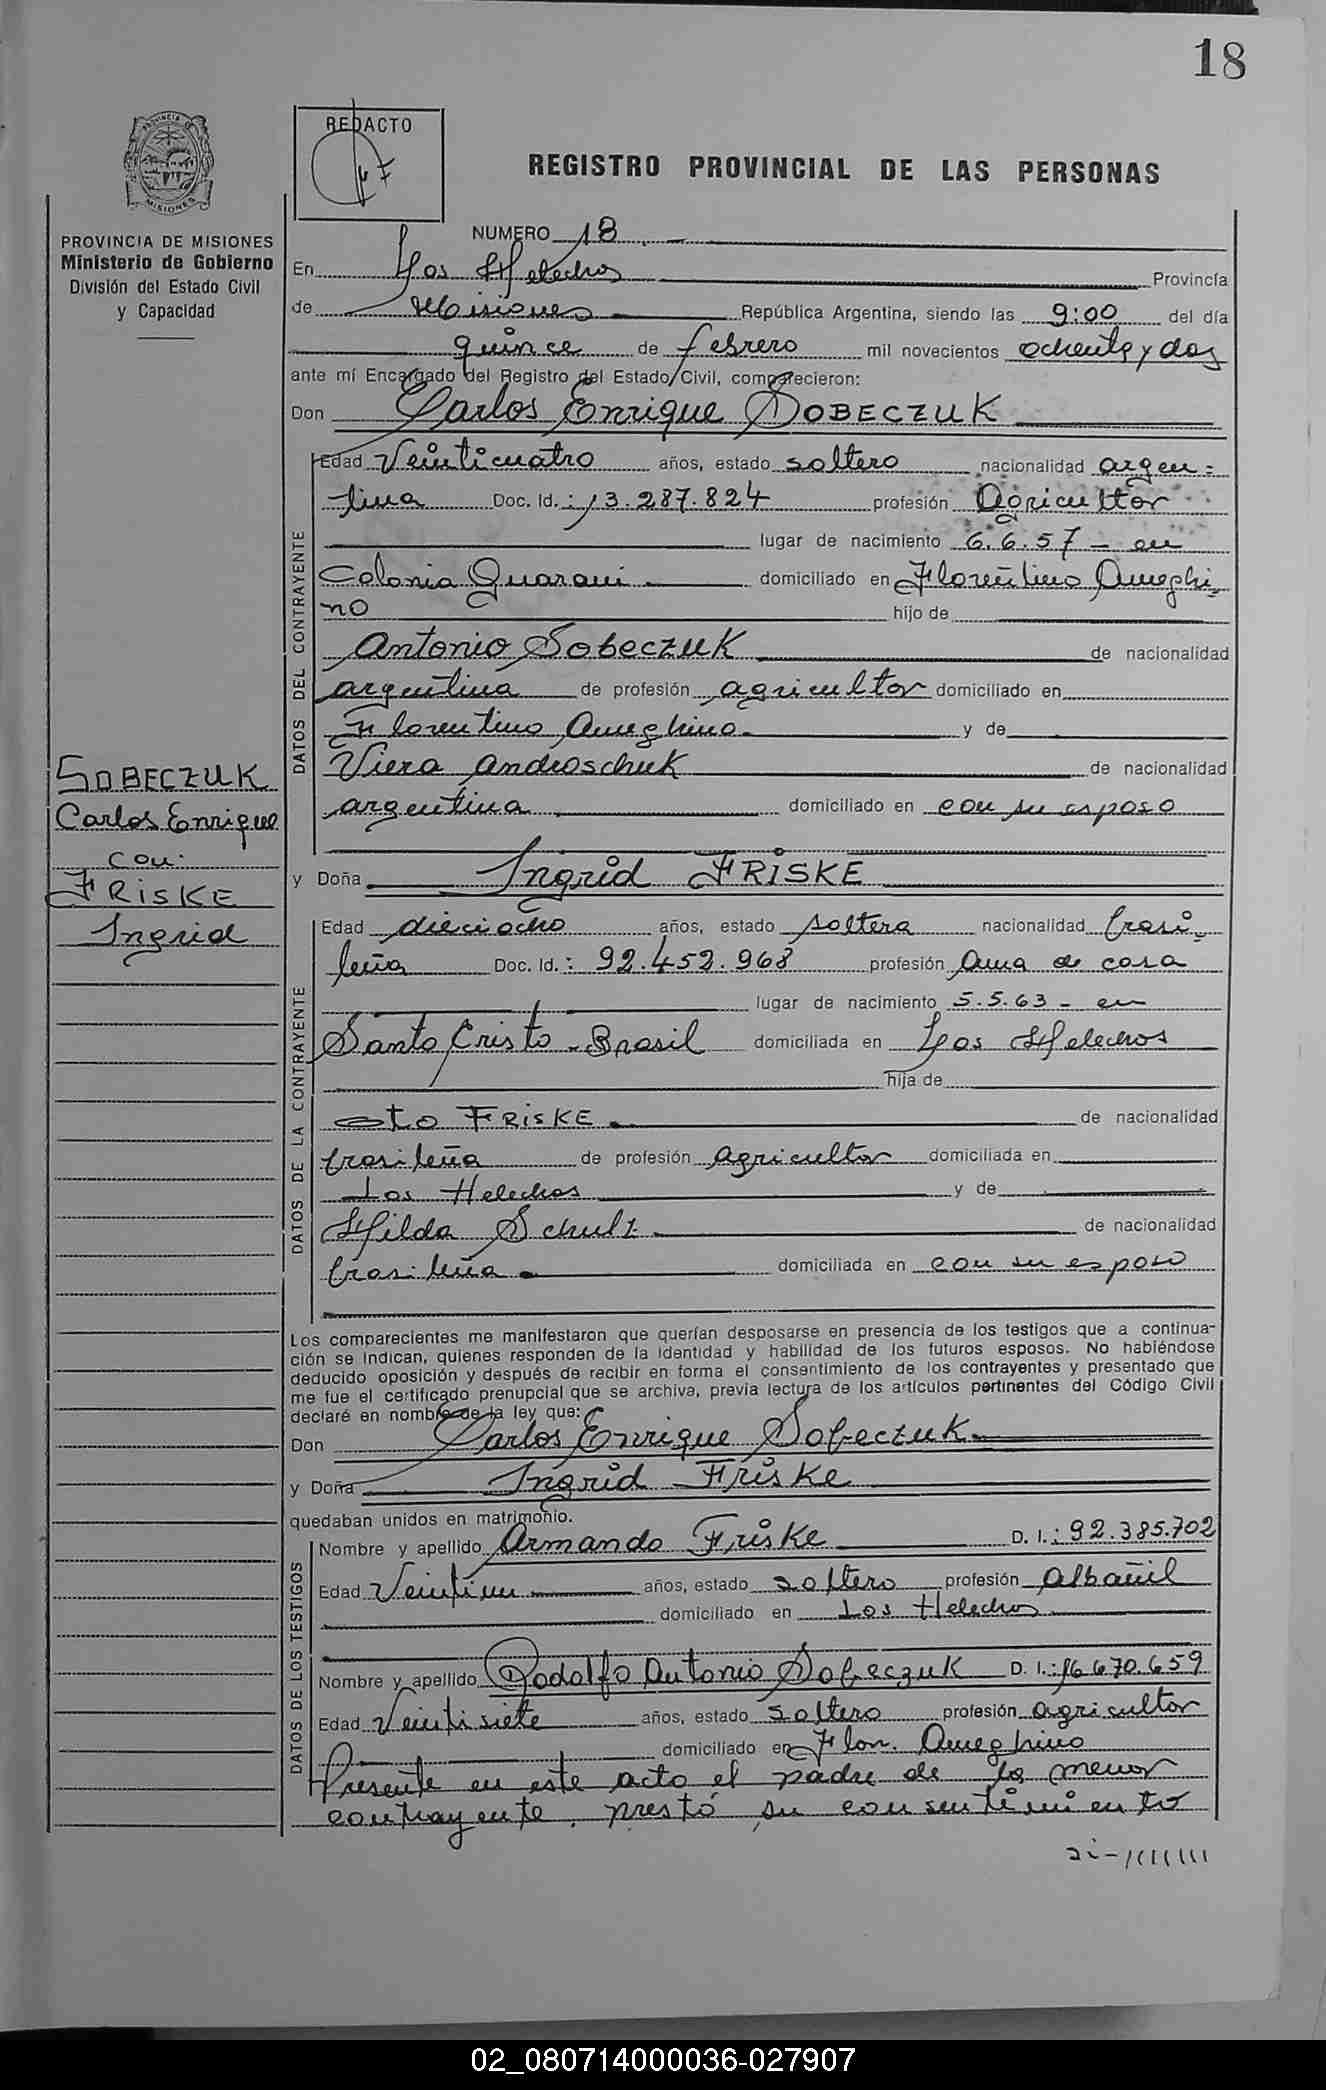 18
REDACTO
REGISTRO PROVINCIAL DE LAS PERSONAS
PROVINCIA DE MISIONES
MISIONES
PROVINCIA DE MISIONES
Ministerio de Gobierno
División del Estado Civil
y Capacidad
SOBECZUK
Carlos Enrique
con:
FRISKE
Ingrid
NUMERO 18
En Los Helechos Provincia
de Misiones República Argentina, siendo las 9:00 del día
quince de febrero mil novecientos ochenta y dos
ante mí Encargado del Registro del Estado Civil, comparecieron:
Don Carlos Enrique SOBECZUK
DATOS DEL CONTRAYENTE
Edad Veinticuatro años, estado soltero nacionalidad argen=
tina Doc. Id.: 13.287.824 profesión Agricultor
lugar de nacimiento 6.6.57 - en
Colonia Guarani domiciliado en Florentino Ameghi=
no hijo de
Antonio Sobeczuk de nacionalidad
argentina de profesión agricultor domiciliado en
Florentino Ameghino y de
Viera Androschuk de nacionalidad
argentina domiciliado en con su esposo
y Doña Ingrid FRISKE
DATOS DE LA CONTRAYENTE
Edad dieciocho años, estado soltera nacionalidad brasi=
leña Doc. Id.: 92.452.968 profesión Ama de casa
lugar de nacimiento 5.5.63 - en
Santo Cristo - Brasil domiciliada en Los Helechos
hija de
Oto FRISKE de nacionalidad
brasileña de profesión Agricultor domiciliada en
Los Helechos y de
Hilda Schulz de nacionalidad
brasileña domiciliada en con su esposo
Los comparecientes me manifestaron que querían desposarse en presencia de los testigos que a continua-
ción se indican, quienes responden de la identidad y habilidad de los futuros esposos. No habiéndose
deducido oposición y después de recibir en forma el consentimiento de los contrayentes y presentado que
me fue el certificado prenupcial que se archiva, previa lectura de los artículos pertinentes del Código Civil
declaré en nombre de la ley que:
Don Carlos Enrique Sobeczuk
y Doña Ingrid Friske
quedaban unidos en matrimonio.
DATOS DE LOS TESTIGOS
Nombre y apellido Armando Friske D. I.: 92.385.702
Edad Veintiun años, estado soltero profesión Albañil
domiciliado en Los Helechos
Nombre y apellido Rodolfo Antonio Sobeczuk D. I.: 16.670.659
Edad Veintisiete años, estado soltero profesión agricultor
domiciliado en Flor. Ameghino
Presente en este acto el padre de la menor
contrayente, prestó su consentimiento
02_080714000036-027907